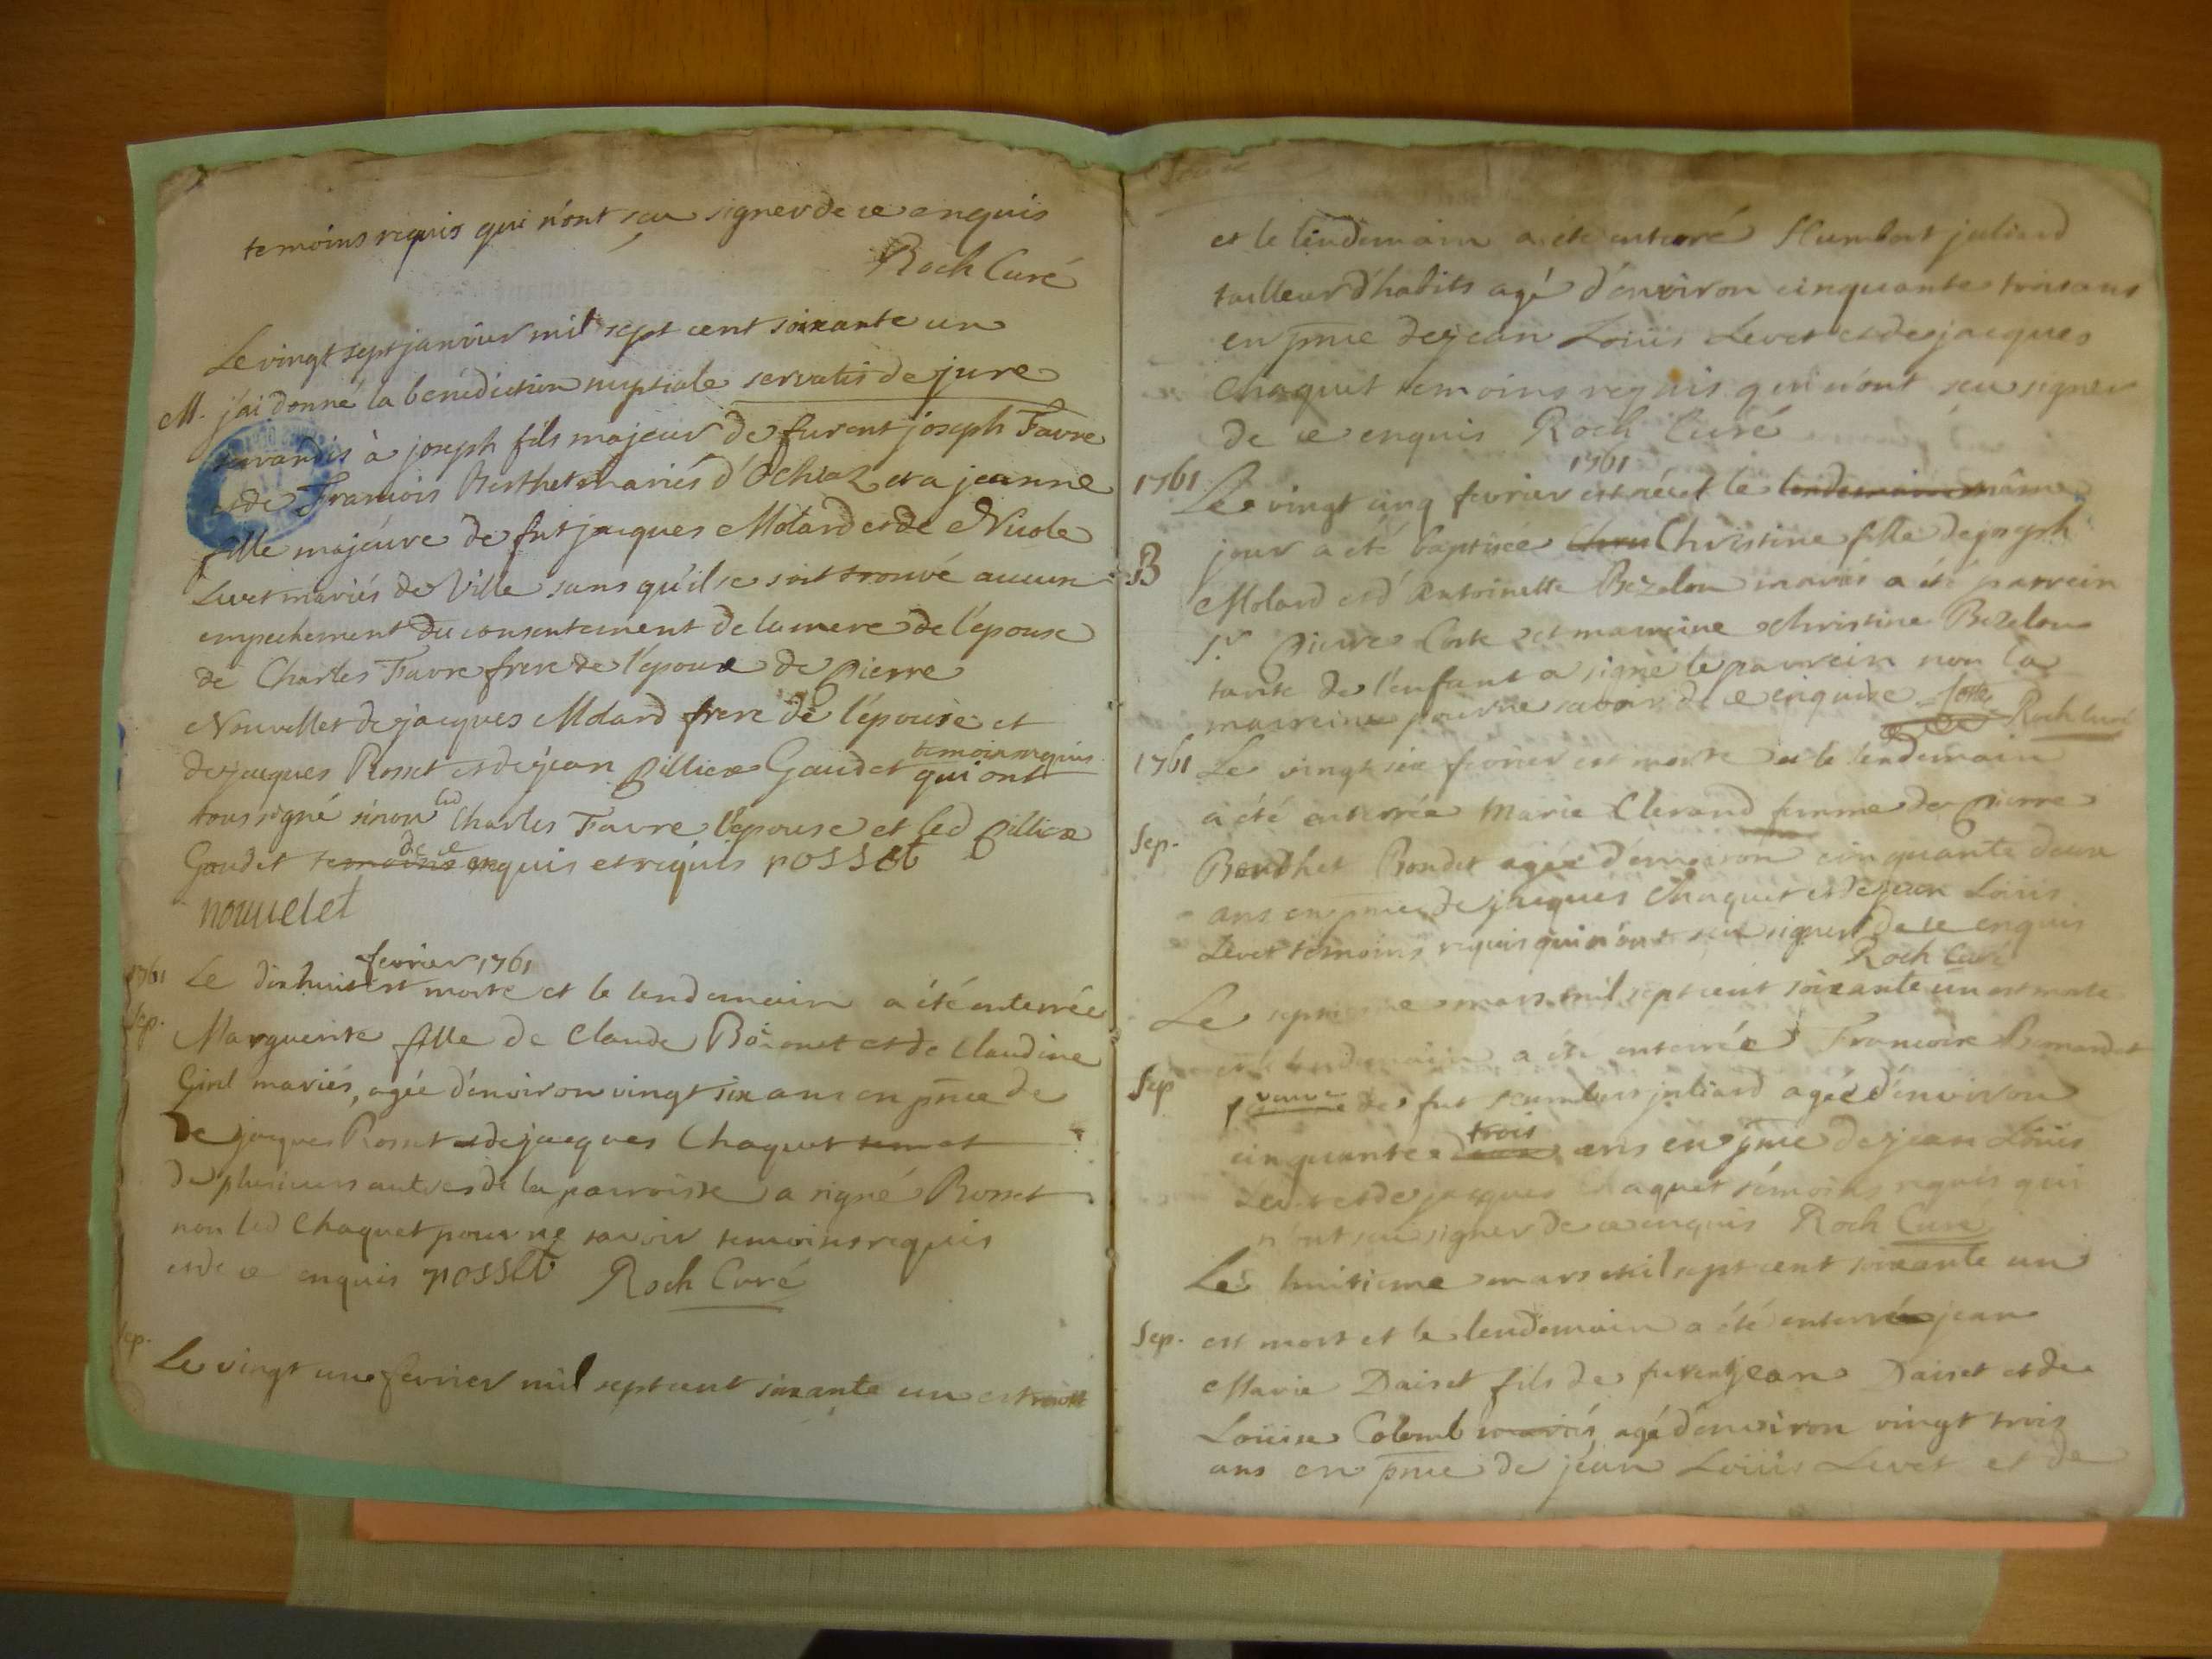 temoins requis qui n'ont seu signer de ce enquis
Roch Curé
Le vingt sept janvier mil sept cent soixante un
M. j'ai donné la benediction nuptiale servatis de jure
servandis à joseph fils majeur de furent joseph Favre
et de Francois Berthet mariés d'Ochiaz et a jeanne
fille majeure de fut jacques Molard et de Nicole
Levet mariés de Ville sans qu'il se soit trouvé aucun
empechement du consentement de la mere de l'épouse
de Charles Favre frere de l'époux de pierre
Nouvellet de jacques Molard frere de l'épouse et
temoins requis
de jacques Rosset et de jean Billiex Gaudet qui ont
tous signé sinon led Charles Favre l'épouse et led Billiex
de ce
Gaudet temoins enquis et requis Rosset
nouuelet
fevrier 1761
1761 Le dix huit est morte et le lendemain a été enterrée
Sep. Marguerite fille de Claude et de Claudine
mariés, agée d'environ vingt six ans en pnce de
De jacques Rosset et de jacques Chaquet
de plusieurs autres de la parroisse a signé Rosset
non led Chaquet pour ne savoir temoins requis
et de ce enquis Rosset Roch Curé
Sep.
Le vingt une fevrier mil sept cent soixante un est mort
et le lendemain a été enterré Humbert juliard
tailleur d'habits agé d'environ cinquante trois ans
en pnce de jean Loüis Levet et de jacques
Chaquet temoins requis qui n'ont seu signer
de ce enquis Roch Curé
1761
1761 Le vingt cinq fevrier est née et le lendemain même
B jour a été baptisée Chris Christine fille de joseph
Molard et d'Antoinette Bezelon mariés a été parrein
S.r pierre Coste et marreine christine Bezelon
tante de l'enfant a signé le parrein non la
marreine pour ne savoir de ce enquise Coste Roch Curé
1761 Le vingt six fevrier est morte et le lendemain
a été enterrée Marie Clerand femme de pierre
Sep. Berthet Rondet agée d'environ cinquante deux
ans en pnce de jacques Chaquet et de jean Loüis
Levet temoins requis qui n'ont seu signer de ce enquis
Roch Curé
Le septieme mars mil sept cent soixante un est morte
et le lendemain a été enterrée Francoise
Sep veuve de fut humbert juliard agée d'environ
trois
cinquante deux ans en pnce de jean Loüis
Levet et de jacques Chaquet témoins requis qui
n'ont seu signer de ce enquis Roch Curé
Le huitieme mars mil sept cent soixante un
Sep. est mort et le lendemain a été enterré jean
Marie Dairet fils de furent jean Dairet et de
Loüise Colomb mariés agé d'environ vingt trois
ans en pnce de jean Loüis Levet et de